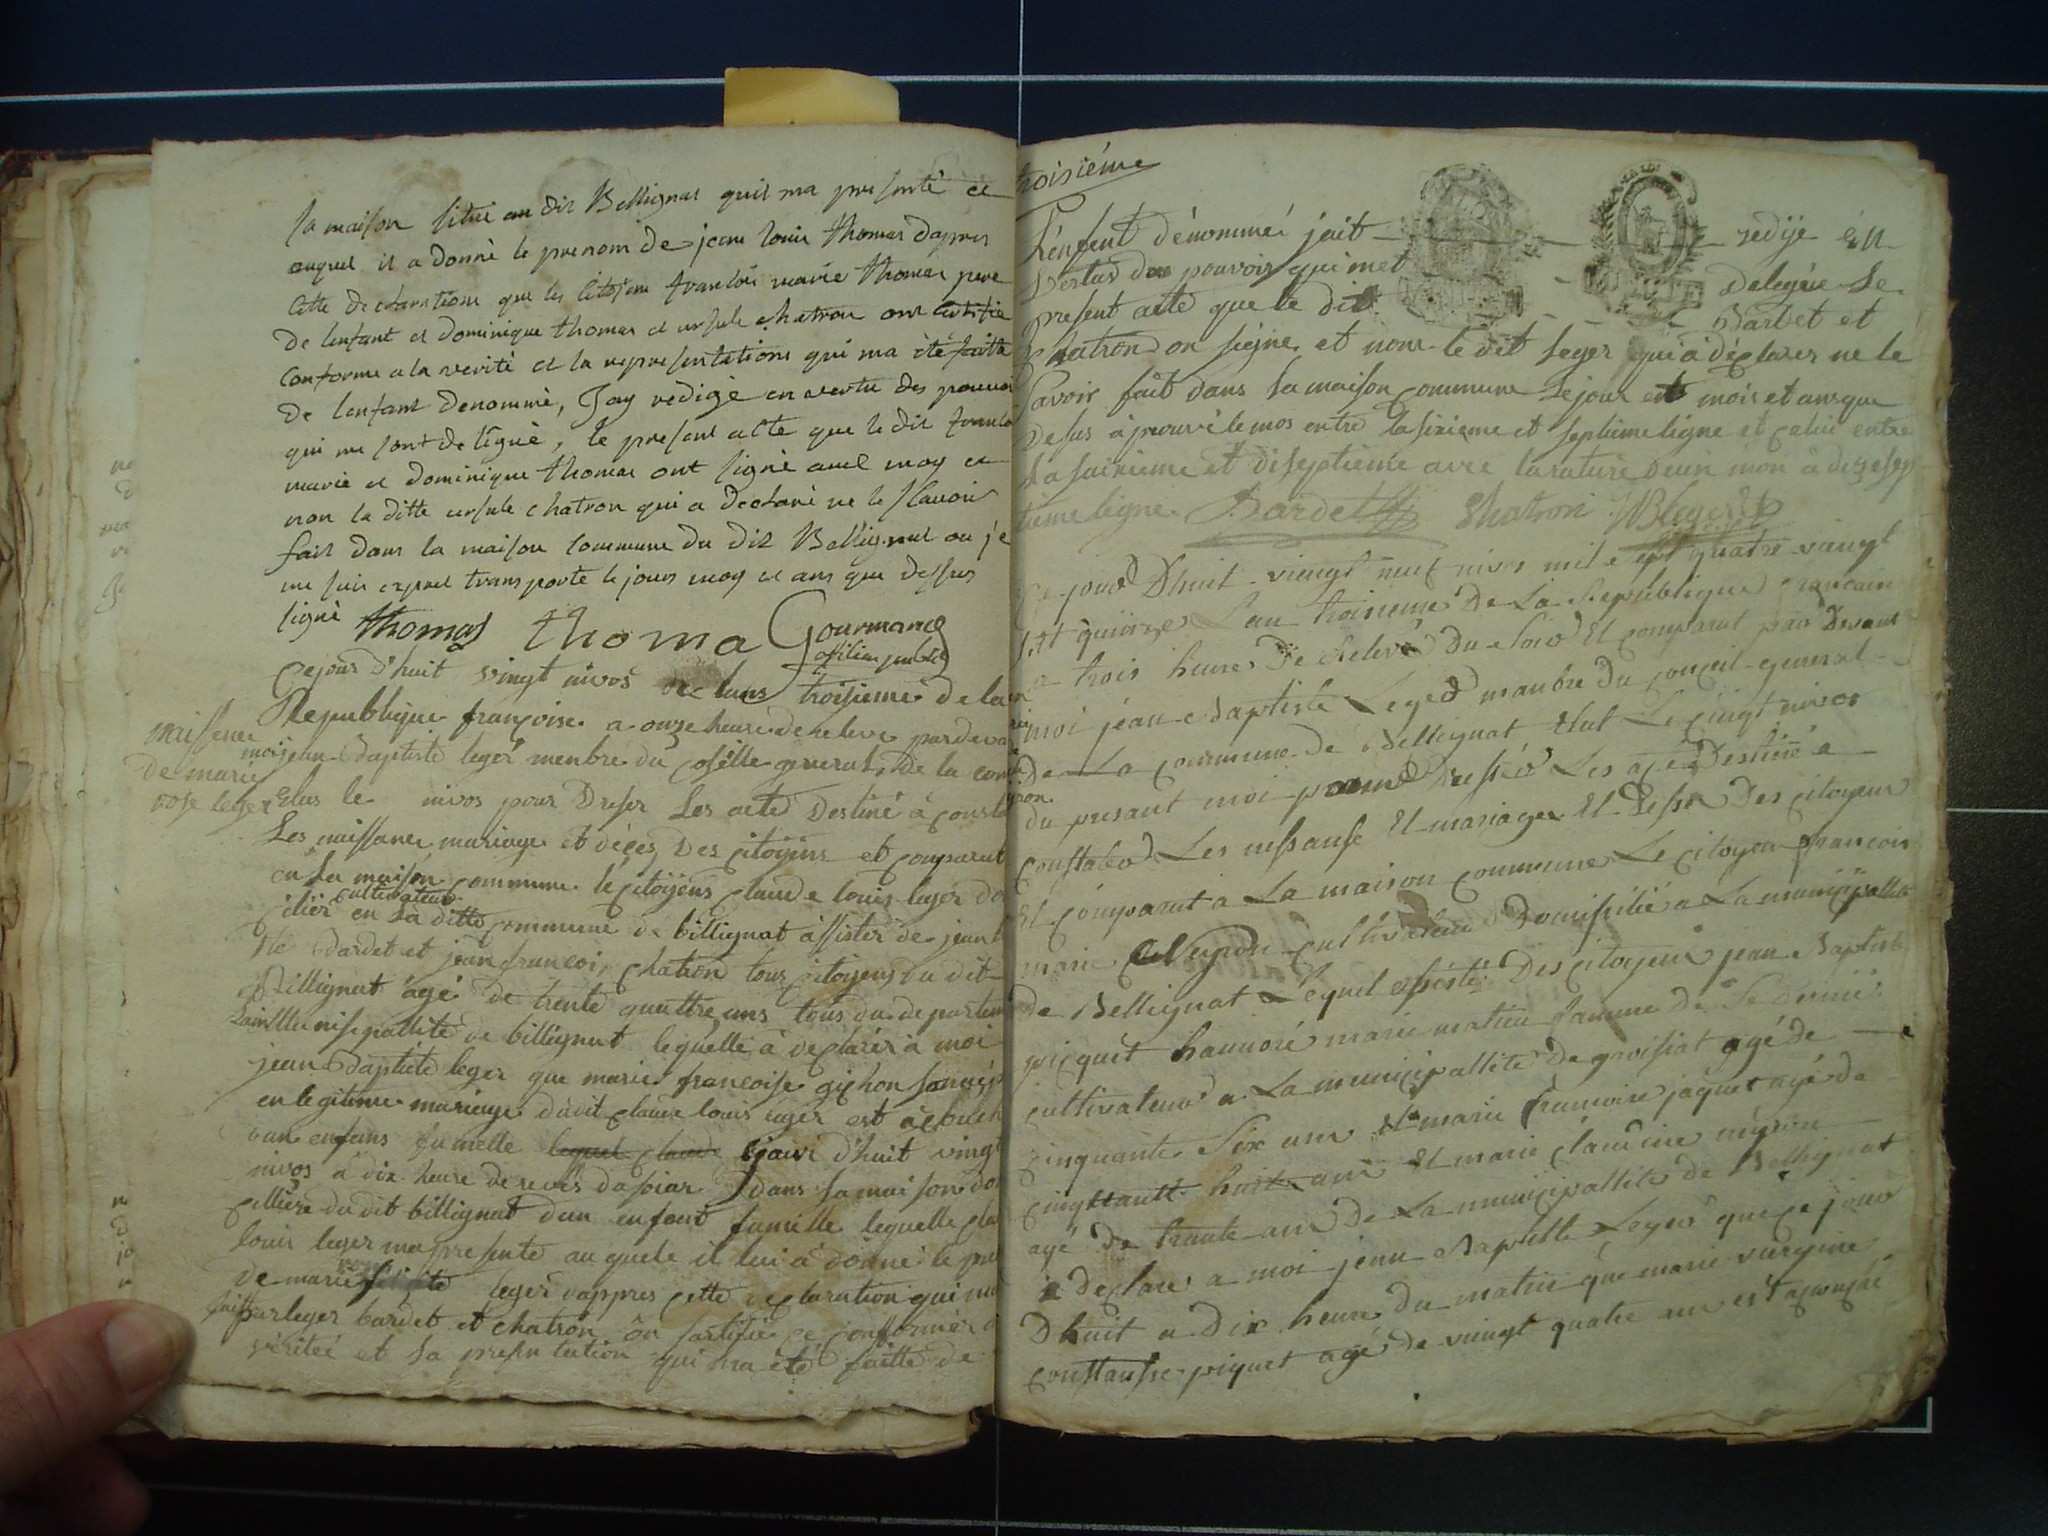 sa maison situé au dit Bellignat quil ma presenté et
auquel il a donné le prenom de jean louis thomas dapres
cette declaration que les citoyens francois marie thomas pere
de lenfant et dominique thomas et ursule chatron ont certifié
conforme a la verité et la representations qui ma été faitte
de lenfant denommé, Jay redigé en vertu des pouvoirs
qui me sont deligué, le present acte que le dit francois
marie et dominique thomas ont signé avec moy et
non la ditte ursule chatron qui a declaré ne le scavoir
fait dans la maison commune du dit Bellignat ou je
me suis exprest transporté le jours moy et ans que dessus
signé thomas thoma Gourmand
officier public
Cejour d'huit vingt nivos de lans troisieme de la
Republique françoise a onze heure de releve pardeva
moi jean Baptiste leger menbre du cosille general de la com
naissance
de marie
rose leger
Elus le nivos pour Dreser Les acte Destiné à const
Les naissance mariage et déces Des citoyens et comparut
en la maison commune le citoyens claude louis leger do
cultivateur
cilier en la ditte commune de billignat assister de jean
Bardet et jean françois chatron tous citoyens du dit
Billignat agé de trente quattre ans tous du departem
Lain Munisipallité de billignat lequelle à declarer a moi
jean Baptiste leger que marie francoise gichon
en legitime mariage du dit claude louis leger est
d'un enfans fumelle lequel claude cjour d'huit vingt
nivos à dix heure de reves dans sa maison do
cillière du dit billignat dun enfant fumille lequelle cla
louis leger ma presente au quele il lui à donné le pre
de marie rose leger dappres cette declaration qui ma
faitte par leger bardet et chatron on sartifié ce conformer a
véritée et la presentation qui ma été faitte de
troisiéme
Lénfent dénommé jait redije én
vertus des pouvoir qui met delegée le
present acte que le dit Bardet et
chatron on signe et nom le dit leger qui à déclarer ne le
savoir fait dans la maison commune le jour et mois et ans que
desus àprouvé le mos entre la sixieme et septieme ligne et celui entre
la saixieme et diseptieme avec la rature deun mon à dizesep
tieme ligne Bardet Chatron JBleger
Ce jour Dhuit viengt neuf nivos mil e sept quatre viengt
et quinze L'an troisieme De La Republique Francain
a trois heure De Releve du soir Et comparut par Devant
moi jéan Baptiste Leger manbre du conceil general
de La commune de Bellignat Elut Le vingt nivos
du presant moi pour Dressér Les acte Destiné a
constater Les nessanse Et mariages Et Desse Des citoyens
Et comparut a La maison commune Le citoyen francois
marie cultivateur Domisilié a La municipallité
de Bellignat Lequel assisté Des citoyens jean Baptiste
picquet hannoré marie matieu famme de Se dernié
cultivateur a La municipallité de groissiat agé de
cinquante Six ans Et marie francoise jaquet agé de
cinquante huit ans Et marie claudine
agé De trante ans De La municipallité de Bellignat
a declare a moi jean Baptiste Leger que ce jour
Dhuit a Dix heure du matin que marie vargine
constanse piquet agé de viengt quatre ans est acouché